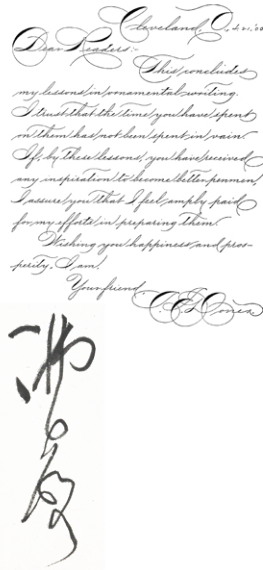 Cleveland, O.
Dear Readers:-
This concludes
my lessons in ornamental writing.
I trust that the time you have spent
on them has not been spent in vain.
If, by these lessons, you have received
any inspiration to become better penmen,
I assure you that I feel amply paid
for my efforts in preparing them.
Wishing you happiness and pros-
perity, I am
Your friend
C. E. Doner